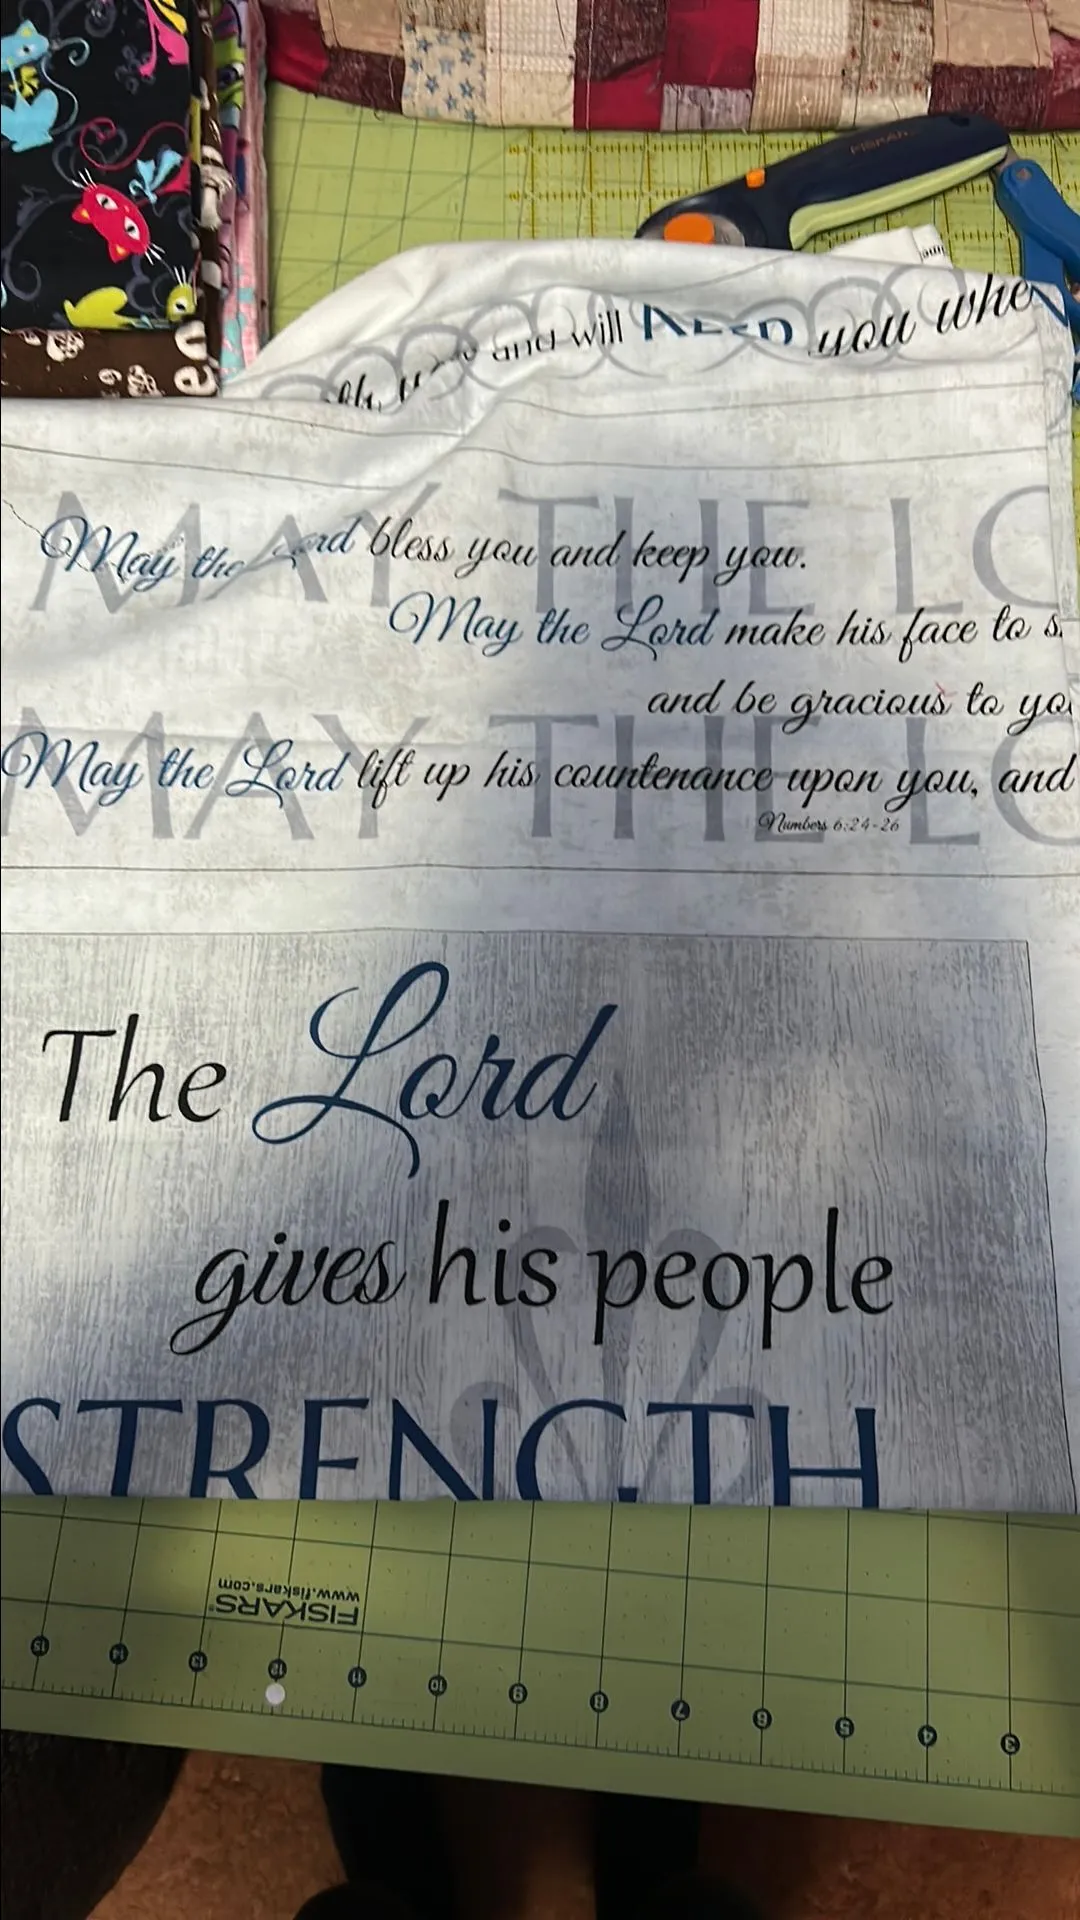 FISKARS
and will KEEP you when
MAY THE LO
May the Lord bless you and keep you.
May the Lord make his face to s
and be gracious to yo
MAY THE LO
May the Lord lift up his countenance upon you, and
Numbers 6:24-26
The Lord
gives his people
STRENGTH
www.fiskars.com
FISKARS
15 14 13 12 11 10 9 8 7 6 5 4 3